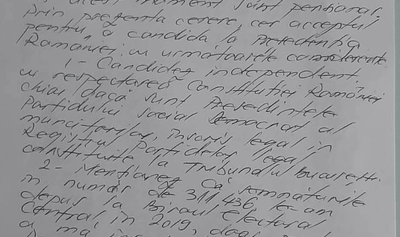 acest moment sunt pensionar,
Prin prezenta cerere, cer acceptul
pentru a candida la Președenția
României, cu următoarele
1- Candidez independent,
cu respectarea Constituției României
chiar dacă sunt Președintele
Partidului Social Democrat al
muncitorilor, înscris legal în
Registrul Partidelor legal
constituite la Tribunalul București.
2- Menționez că semnăturile
în număr de 311.436, le-am
depus la Biroul Electoral
Central în 2019, dacă
a mai